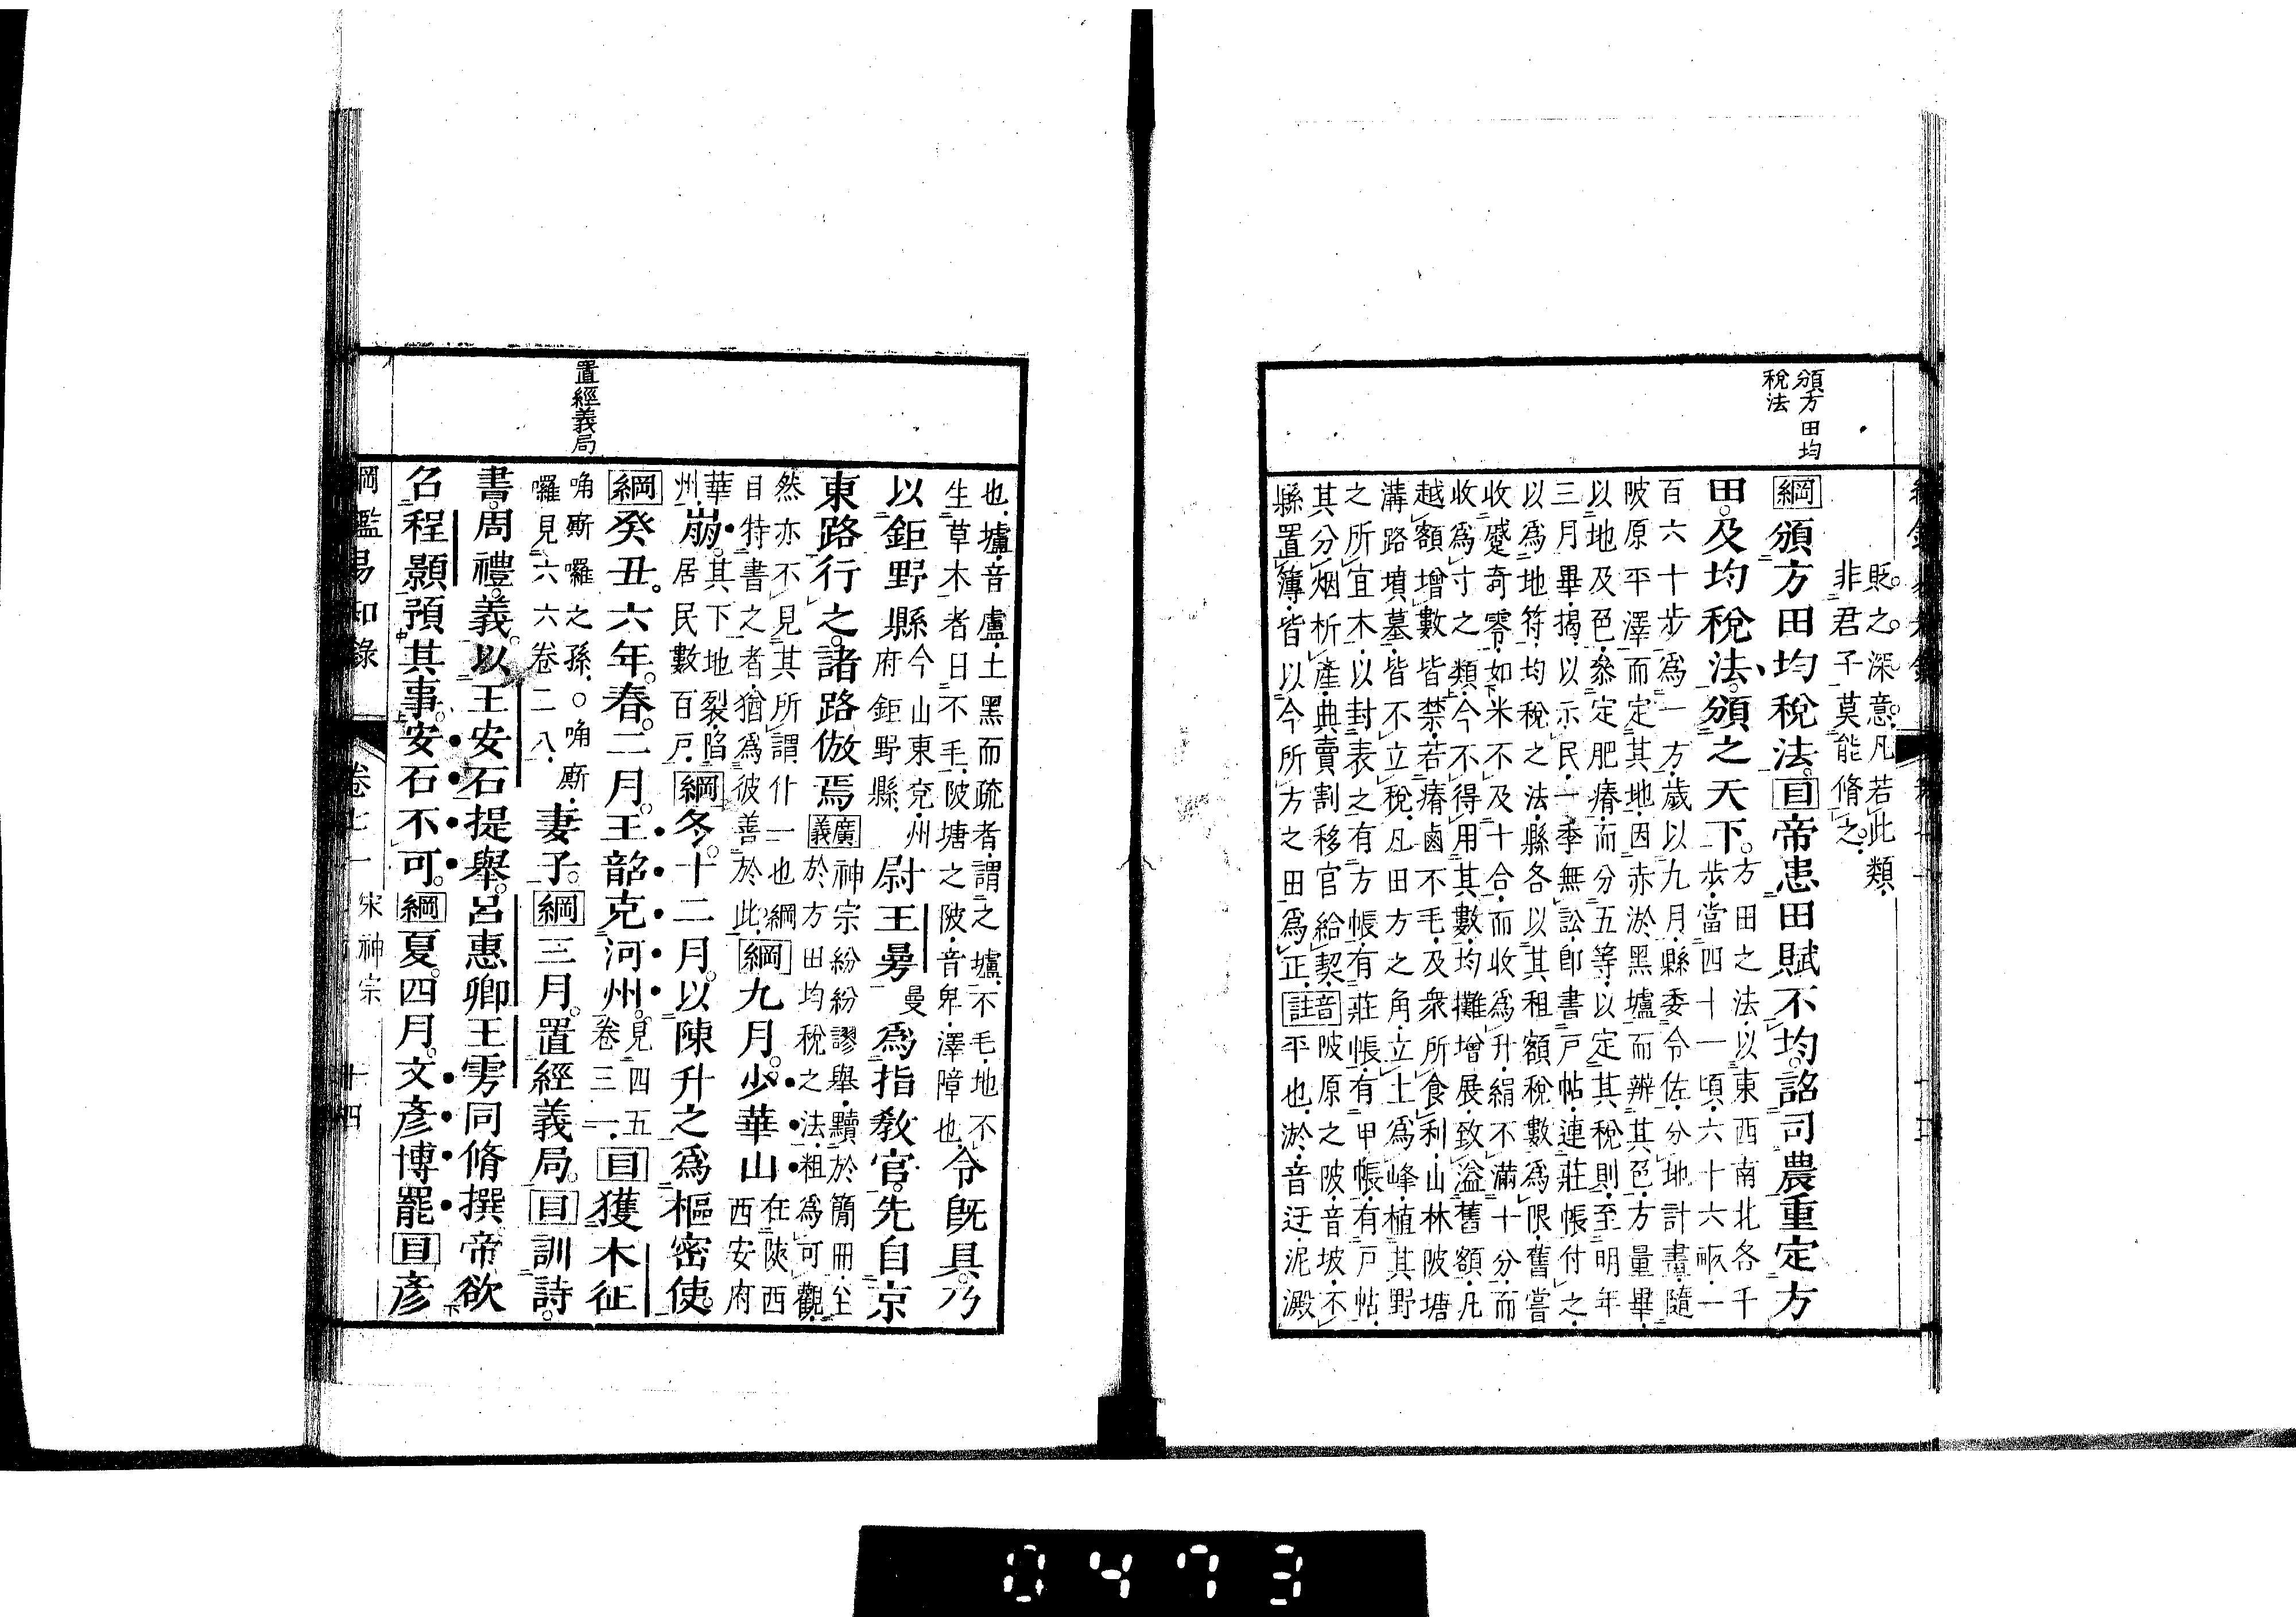 頒方田均
稅法
貶之深意凡若此類
非君子莫能脩之
綱頒方田均稅法目帝患田賦不均詔司農重定方
田及均稅法頒之天下方田之法以東西南北各千
步當四十一頃六十六畝一
百六十步爲一方歲以九月縣委令佐分地計畫隨
陂原平澤而定其地因赤淤黑壚而辨其色方量畢
以地及色參定肥瘠而分五等以定其稅則至明年
三月畢揭以示民一季無訟卽書戸帖連莊帳付之
以爲地符均稅之法縣各以其租額稅數爲限舊嘗
收蹙奇零如米不及十合而收爲升絹不滿十分而
收爲寸之類今不得用其數均攤增展致溢舊額凡
越額增數皆禁若瘠鹵不毛及衆所食利山林陂塘
溝路墳墓皆不立稅凡田方之角立土爲峰植其野
之所宜木以封表之有方帳有莊帳有甲帳有戸帖
其分烟析產典賣割移官給契
縣置簿皆以今所方之田爲正音註陂原之陂音坡不
平也淤音迂泥澱
也壚音盧土黑而疏者謂之壚不毛地不
生草木者曰不毛陂塘之陂音卑澤障也令旣具乃
以鉅野縣今山東兗州
府鉅野縣尉王曼曼爲指教官先自京
東路行之諸路倣焉廣義神宗紛紛謬舉黷於簡冊
於方田均稅之法粗爲可觀
然亦不見其所謂什一也綱
目特書之者猶爲彼善於此綱九月少華山在陝西
西安府
華州崩其下地裂陷
居民數百戸綱冬十二月以陳升之爲樞密使
綱癸丑六年春二月王韶克河州見四五
卷三一目獲木征
唃廝囉之孫○唃廝
囉見六六卷二八妻子綱三月置經義局目訓詩
置經義局
書周禮義以王安石提舉呂惠卿王雱同脩撰帝欲
召程顥預其事安石不可綱夏四月文彥博罷目彥
綱鑑易知錄 卷七一 宋神宗 十四
0473